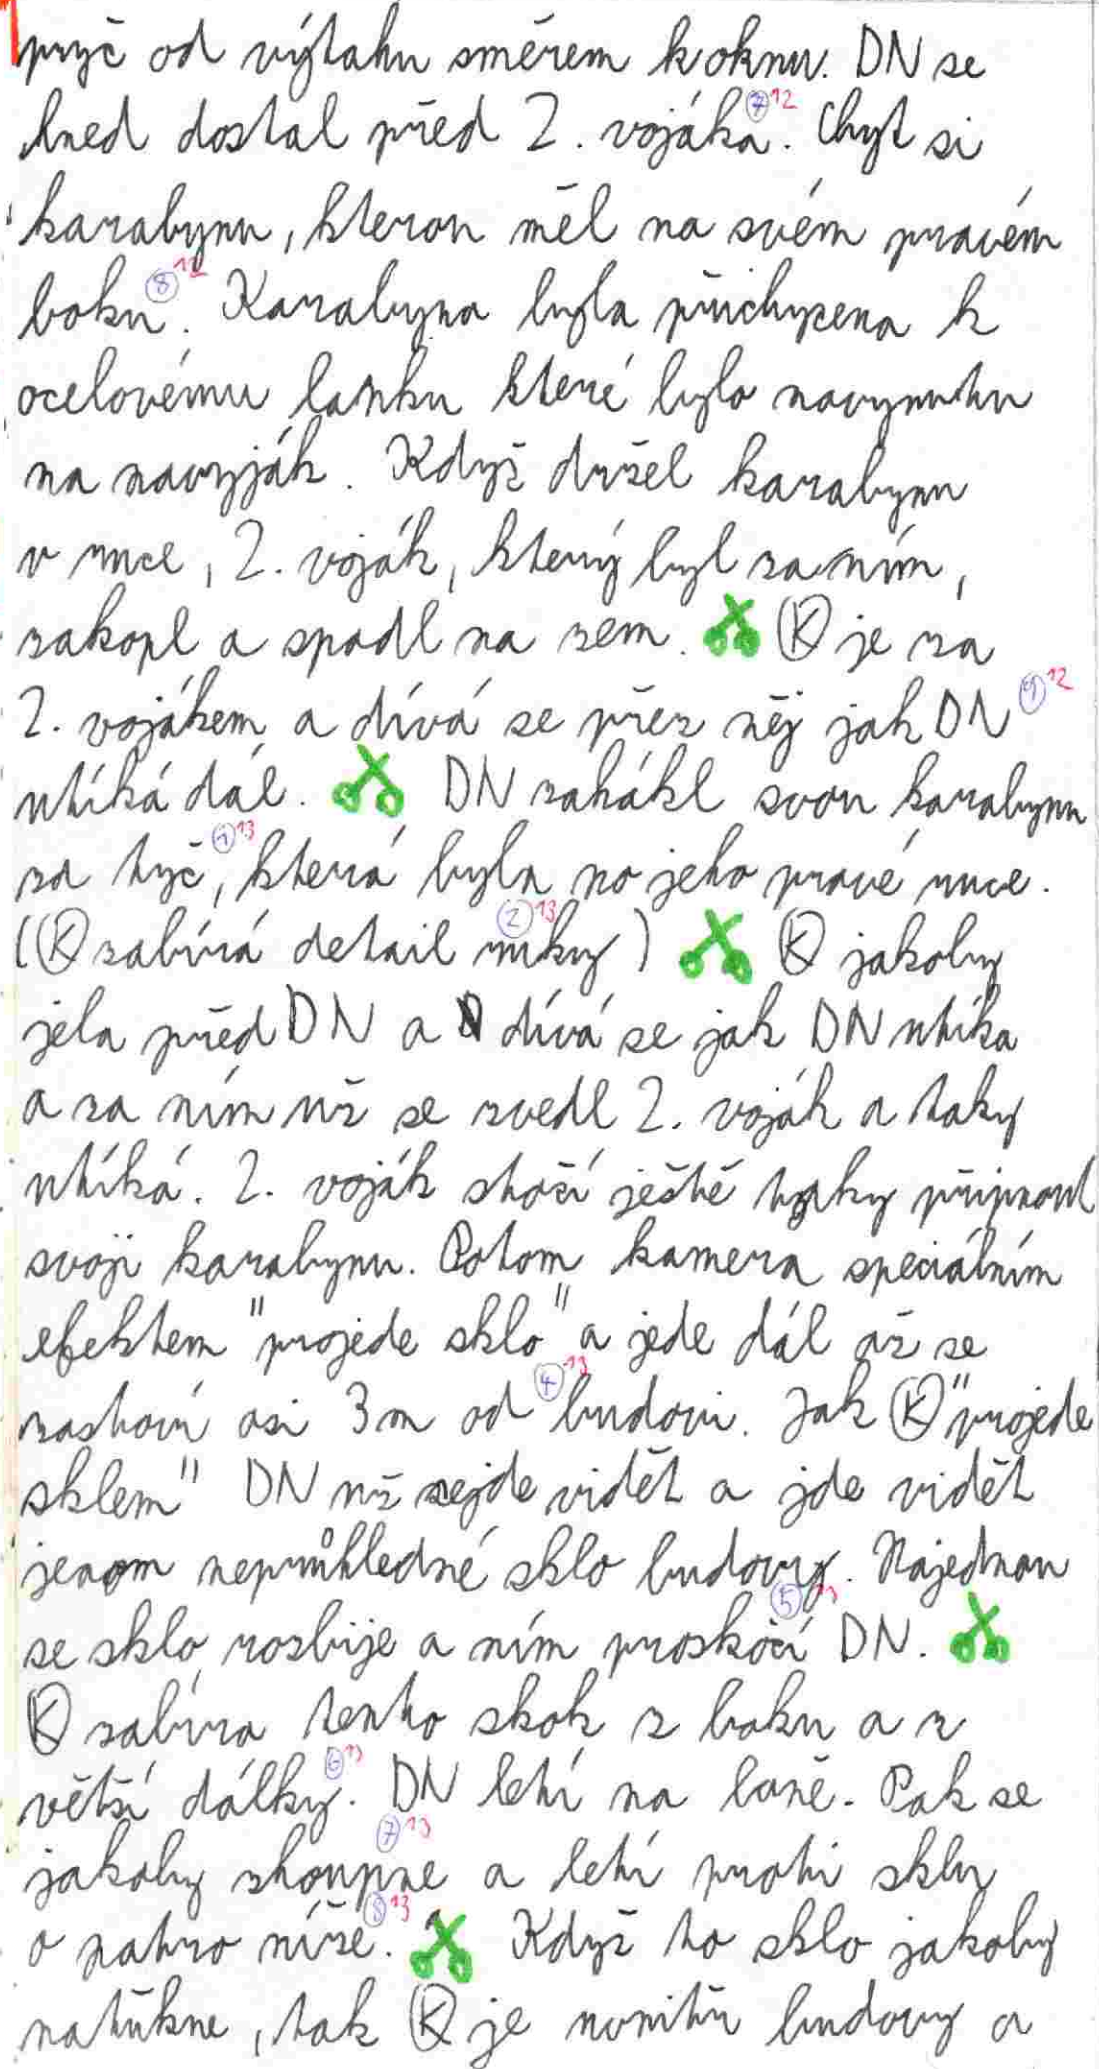 pryč od výtahu směrem k oknu. DN se
hned dostal před 2. vojáka⑦12. Chyt si
karabynu, kterou měl na svém pravém
boku⑧12. Karabyna byla přichycena k
ocelovému lanku které bylo navynuhu
na navyják. Když držel karabynu
v ruce, 2. voják, který byl za ním,
zakopl a spadl na zem. Ⓚ je za
2. vojákem a dívá se přez něj jak DN ⑨12
utíká dál. DN zahákl svou karabynu
za tyč①13, která byla po jeho pravé ruce.
(Ⓚ zabírá detail ruky②13) Ⓚ jakoby
jela před DN a dívá se jak DN utíka
a za ním už se zvedl 2. voják a taky
utíká. 2. voják stočí ještě tyky připnout
svoji karabynu. Potom kamera speciálním
efektem "projede sklo" a jede dál až se
zastaví asi 3m od ④13 budovi. Jak Ⓚ "projede
sklem" DN už nejde vidět a jde vidět
jenom neprůhledné sklo budovy. Najednou
se sklo rozbije a ním proskočí⑤13 DN.
Ⓚ zabíra tento skok z boku a z
větší dálky⑥13. DN letí na laně. Pak se
jakoby zhoupne⑦13 a letí proti sklu
o patro níže.⑧13 Když to sklo jakoby
natůkne, tak Ⓚ je uvnitř budovy a